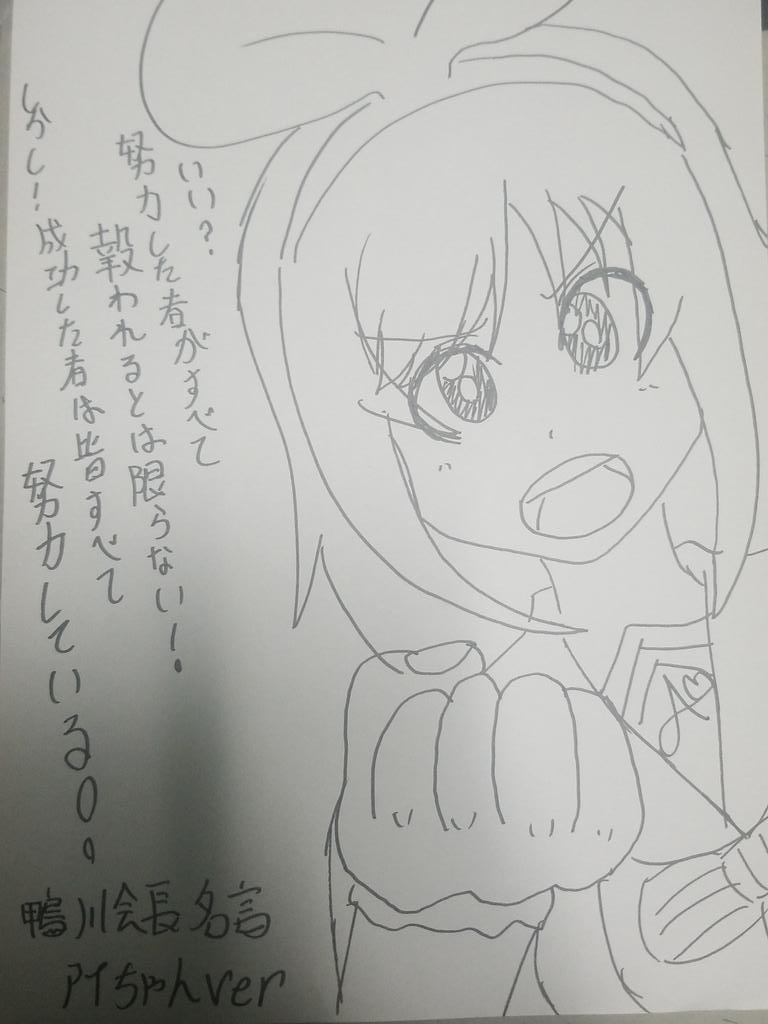 いい?
努力した者がすべて
報われるとは限らない!
しかし!成功した者は皆すべて
努力している。
鴨川会長名言
アイちゃんver
A